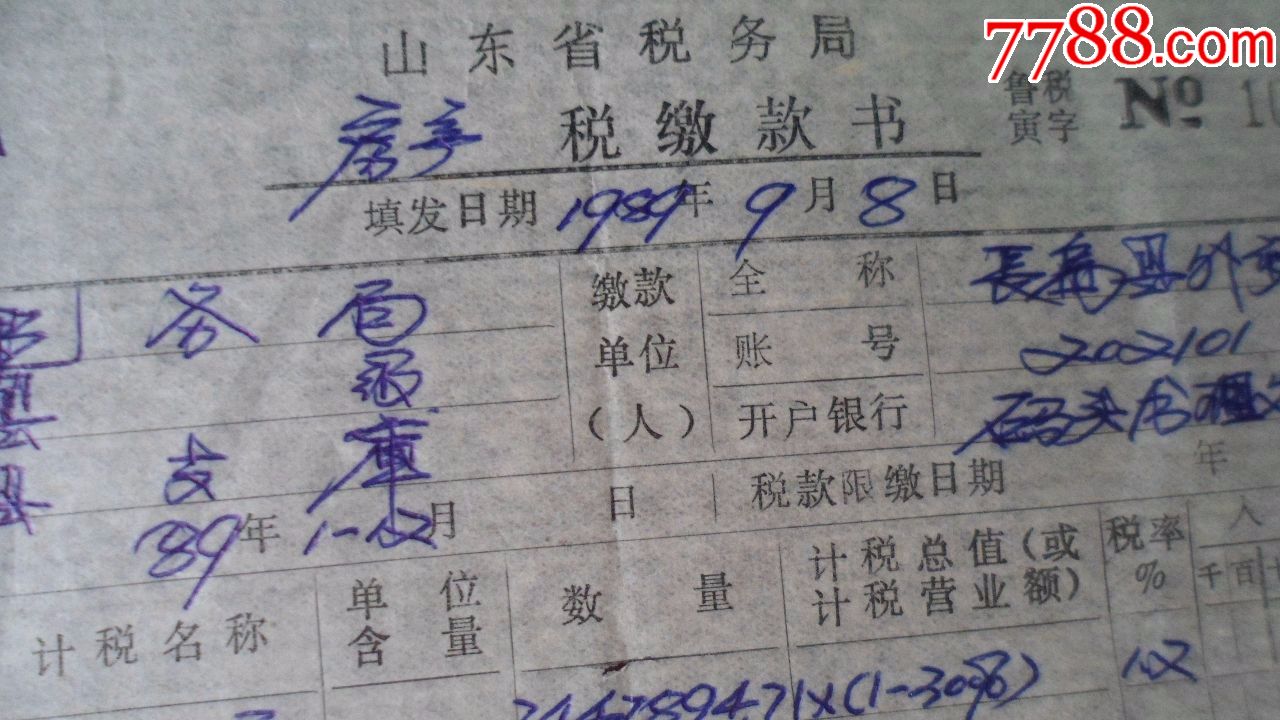 7788.com
山东省税务局
房产 税缴款书
鲁税
寅字 № 10
填发日期 1989年 9月 8日
务局
缴款
单位
（人）
全称 長島县外
账号 202101
开户银行 码头
支庫
89年 1-12月 日
税款限缴日期 年
计税名称
单位
含量
数量
计税总值（或
计税营业额）
税率
%
千百十
×(1-30%)
12